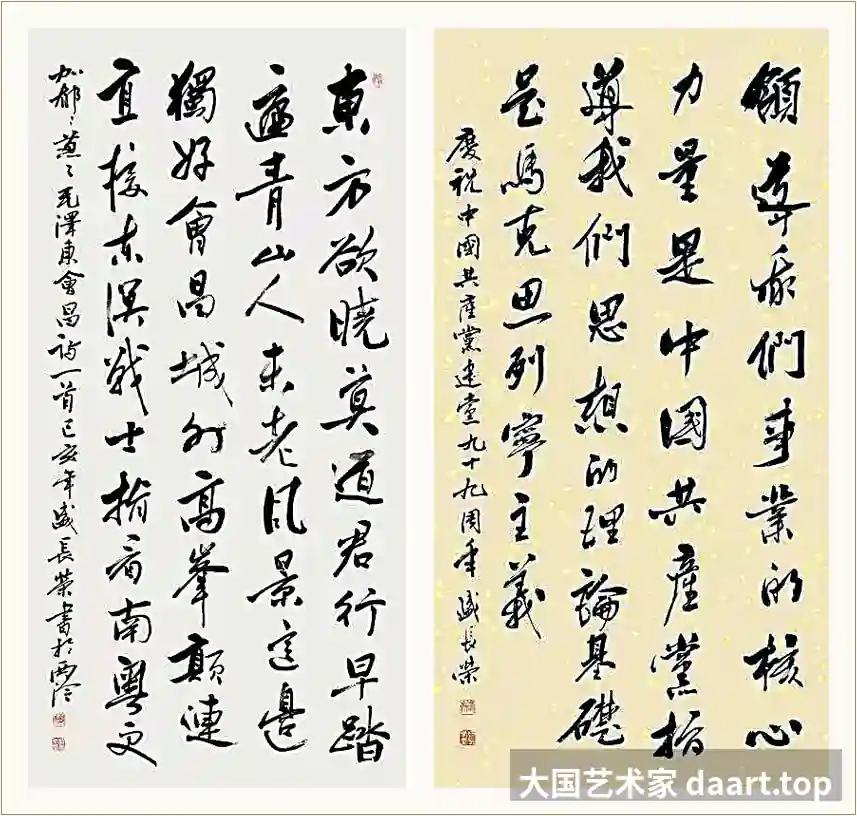 東方欲曉莫道君行早踏
遍青山人未老风景這邊
獨好會昌城外高峯顛連
直接东溟戰士指看南粵更
加郁〻葱〻毛澤東會昌詩一首己亥年盛長榮書於西泠
領導我們事業的核心
力量是中國共產黨指
導我們思想的理論基礎
是馬克思列寧主義
慶祝中國共產黨建黨九十九周年盛長榮
大国艺术家 daart.top